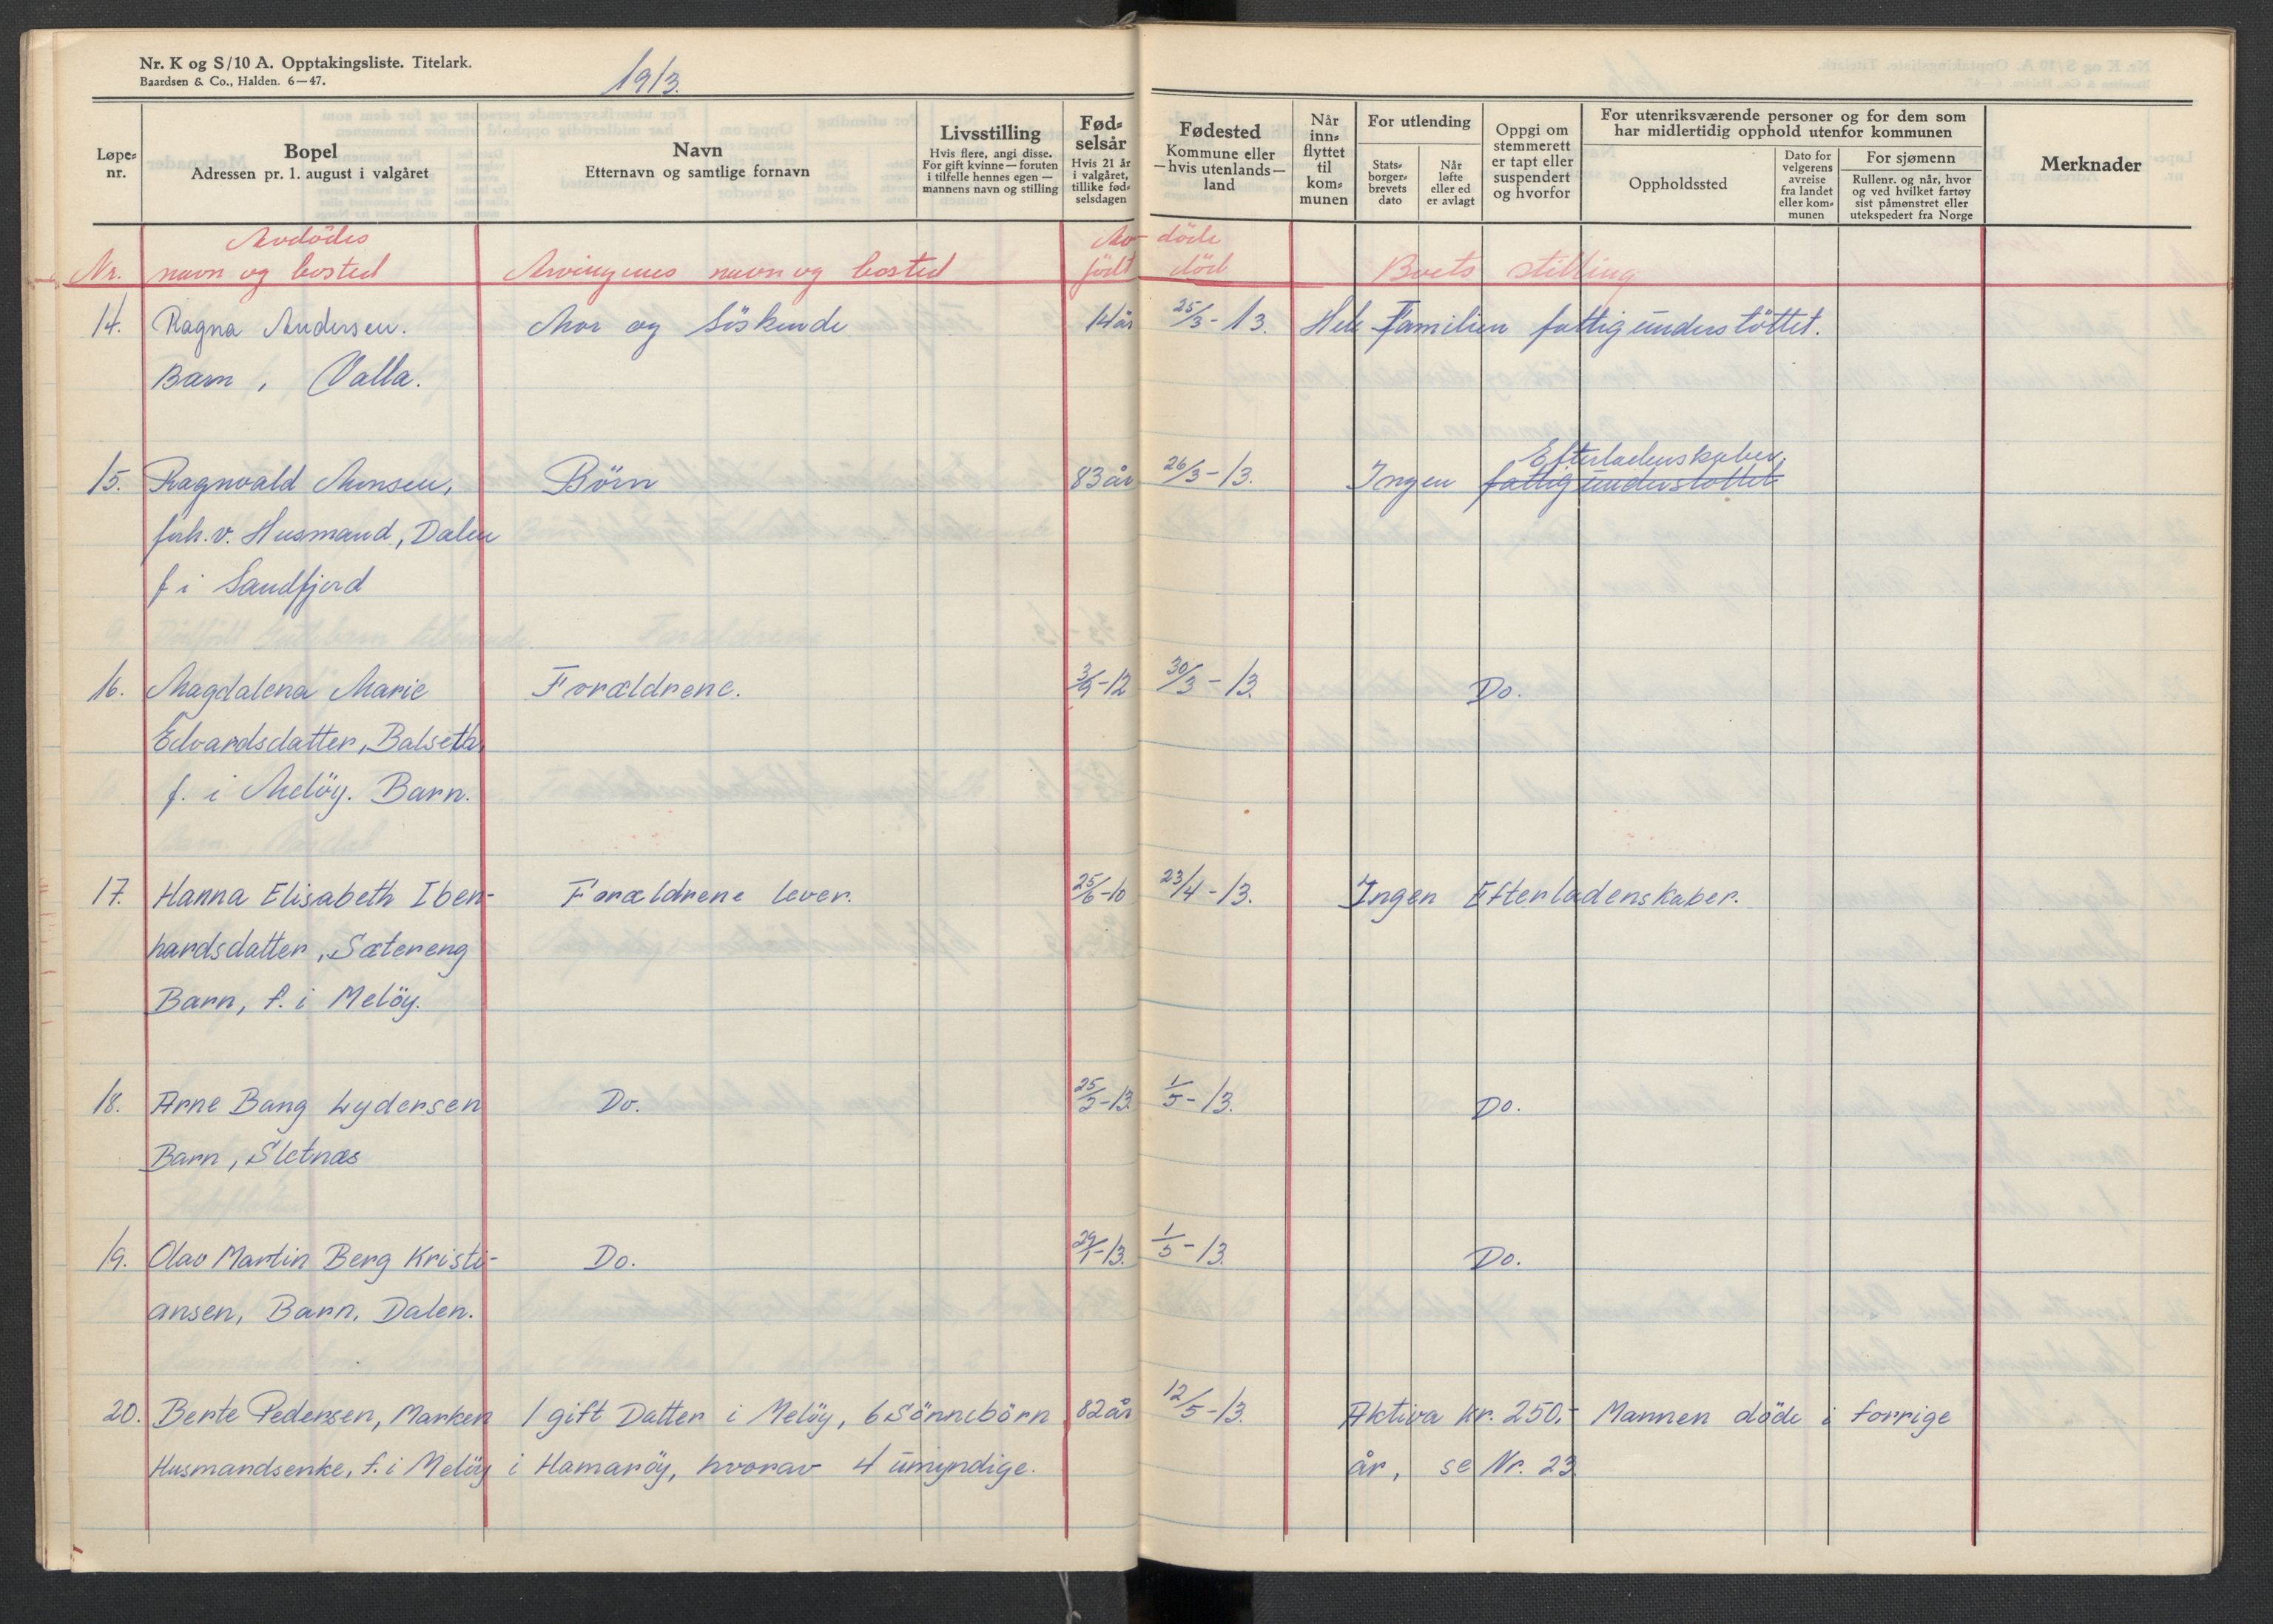 Nr. K og S/10 A. Opptakingsliste. Titelark.
Baardsen & Co., Halden. 6—47.
1913.
Løpe-
nr.
Bopel
Adressen pr. 1. august i valgåret
Navn
Etternavn og samtlige fornavn
Livsstilling
Hvis flere, angi disse.
For gift kvinne — foruten
i tilfelle hennes egen —
mannens navn og stilling
Fød-
selsår
Hvis 21 år
i valgåret,
tillike fød-
selsdagen
Fødested
Kommune eller
—hvis utenlands—
land
Når
inn-
flyttet
til
kom-
munen
For utlending
Stats-
borger-
brevets
dato
Når
løfte
eller ed
er avlagt
Oppgi om
stemmerett
er tapt eller
suspendert
og hvorfor
For utenriksværende personer og for dem som
har midlertidig opphold utenfor kommunen
Oppholdssted
Dato for
velgerens
avreise
fra landet
eller kom-
munen
For sjømenn
Rullenr. og når, hvor
og ved hvilket fartøy
sist påmønstret eller
utekspedert fra Norge
Merknader
Avdödes Av- döde
Nr. navn og bosted Arvingenes navn og bosted födt död Boets stilling
14. Ragna Andersen. Mor og Söskende 14 år 25/3-13. Hele Familien fattigunderstöttet.
Barn, Valla.
Efterladenskaber.
15. Ragnvald Monsen, Börn 83 år 26/3-13. Ingen fattigunderstöttet
forh.v. Husmand, Dalen
f i Sandfjord
16. Magdalena Marie Forældrene. 3/9-12 30/3-13. Do.
Edvardsdatter, Balseth,
f. i Melöy. Barn.
17. Hanna Elisabeth Iben- Forældrene lever. 25/6-10 23/4-13. Ingen Efterladenskaber.
hardsdatter, Sætereng
Barn, f. i Melöy.
18. Arne Bang Lydersen Do. 25/2-13. 1/5-13. Do.
Barn, Sletnæs
19. Olav Martin Berg Kristi- Do. 29/1-13. 1/5-13. Do.
ansen, Barn, Dalen.
20. Berte Pedersen, Marken 1 gift Datter i Melöy, 6 Sönnebörn 82 år 12/5-13. Aktiva kr. 250,- Mannen döde i forrige
Husmandsenke, f. i Melöy i Hamaröy, hvorav 4 umyndige. år, se Nr. 23.